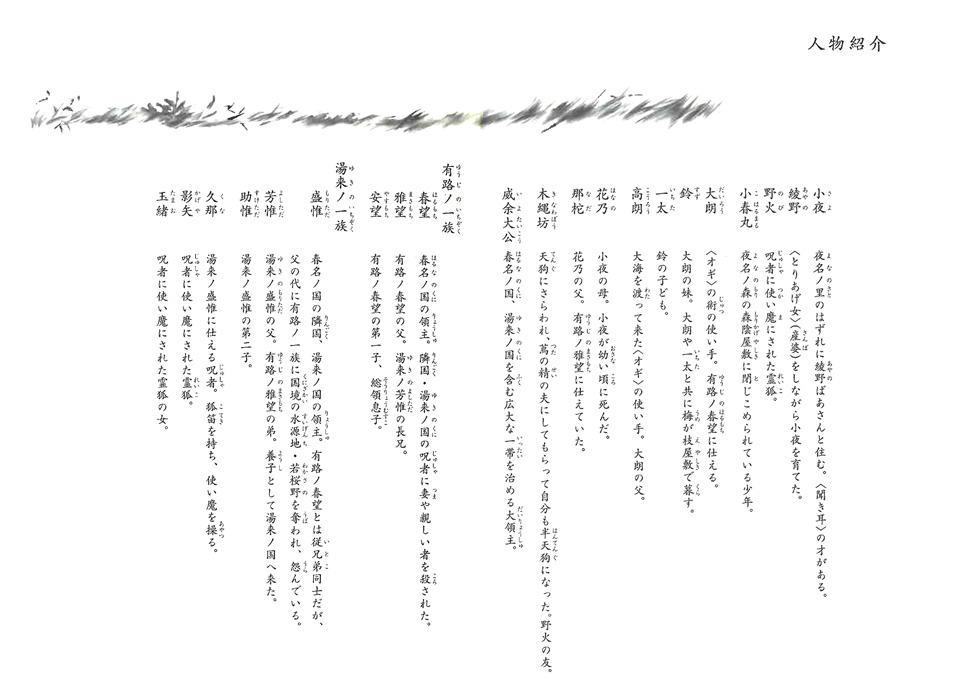 人物紹介
小夜 夜名ノ里のはずれに綾野ばあさんと住む。〈聞き耳〉の才がある。
綾野 〈とりあげ女〉(産婆)をしながら小夜を育てた。
野火 呪者に使い魔にされた霊狐。
小春丸 夜名ノ森の森陰屋敷に閉じこめられている少年。
大朗 〈オギ〉の術の使い手。有路ノ春望に仕える。
鈴 大朗の妹。大朗や一太と共に梅が枝屋敷で暮す。
一太 鈴の子ども。
高朗 大海を渡って来た〈オギ〉の使い手。大朗の父。
花乃 小夜の母。小夜が幼い頃に死んだ。
那柁 花乃の父。有路ノ雅望に仕えていた。
木縄坊 天狗にさらわれ、蔦の精の夫にしてもらって自分も半天狗になった。野火の友。
威余大公 春名ノ国、湯来ノ国を含む広大な一帯を治める大領主。
有路ノ一族
春望 春名ノ国の領主。隣国・湯来ノ国の呪者に妻や親しい者を殺された。
雅望 有路ノ春望の父。湯来ノ芳惟の長兄。
安望 有路ノ春望の第一子、総領息子。
湯来ノ一族
盛惟 春名ノ国の隣国、湯来ノ国の領主。有路ノ春望とは従兄弟同士だが、
父の代に有路ノ一族に国境の水源地・若桜野を奪われ、怨んでいる。
芳惟 湯来ノ盛惟の父。有路ノ雅望の弟。養子として湯来ノ国へ来た。
助惟 湯来ノ盛惟の第二子。
久那 湯来ノ盛惟に仕える呪者。狐笛を持ち、使い魔を操る。
影矢 呪者に使い魔にされた霊狐。
玉緒 呪者に使い魔にされた霊狐の女。